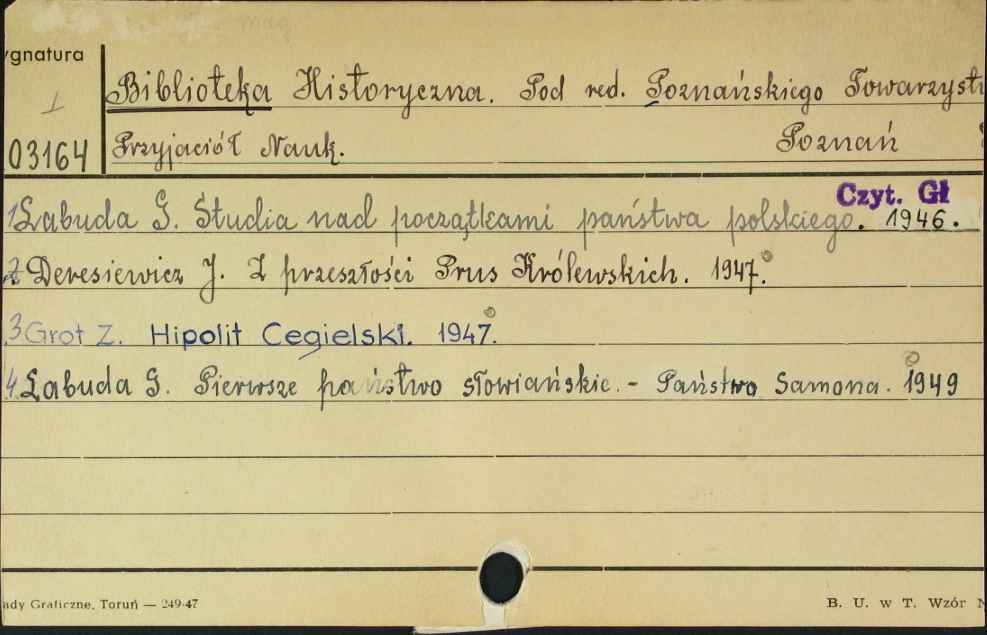 ygnatura
Biblioteka Historyczna. Pod red. Poznańskiego Towarzyst
03164 Przyjaciół Nauk. Poznań
Czyt. Gł
1 Łabuda G. Studia nad początkami państwa polskiego. 1946.
2 Deresiewicz J. Z przeszłości Prus Królewskich. 1947.
3 Grot Z. Hipolit Cegielski. 1947.
4. Łabuda G. Pierwsze państwo słowiańskie. - Państwo Samona. 1949
ady Graficzne, Toruń — 249-47
B. U. w T. Wzór N